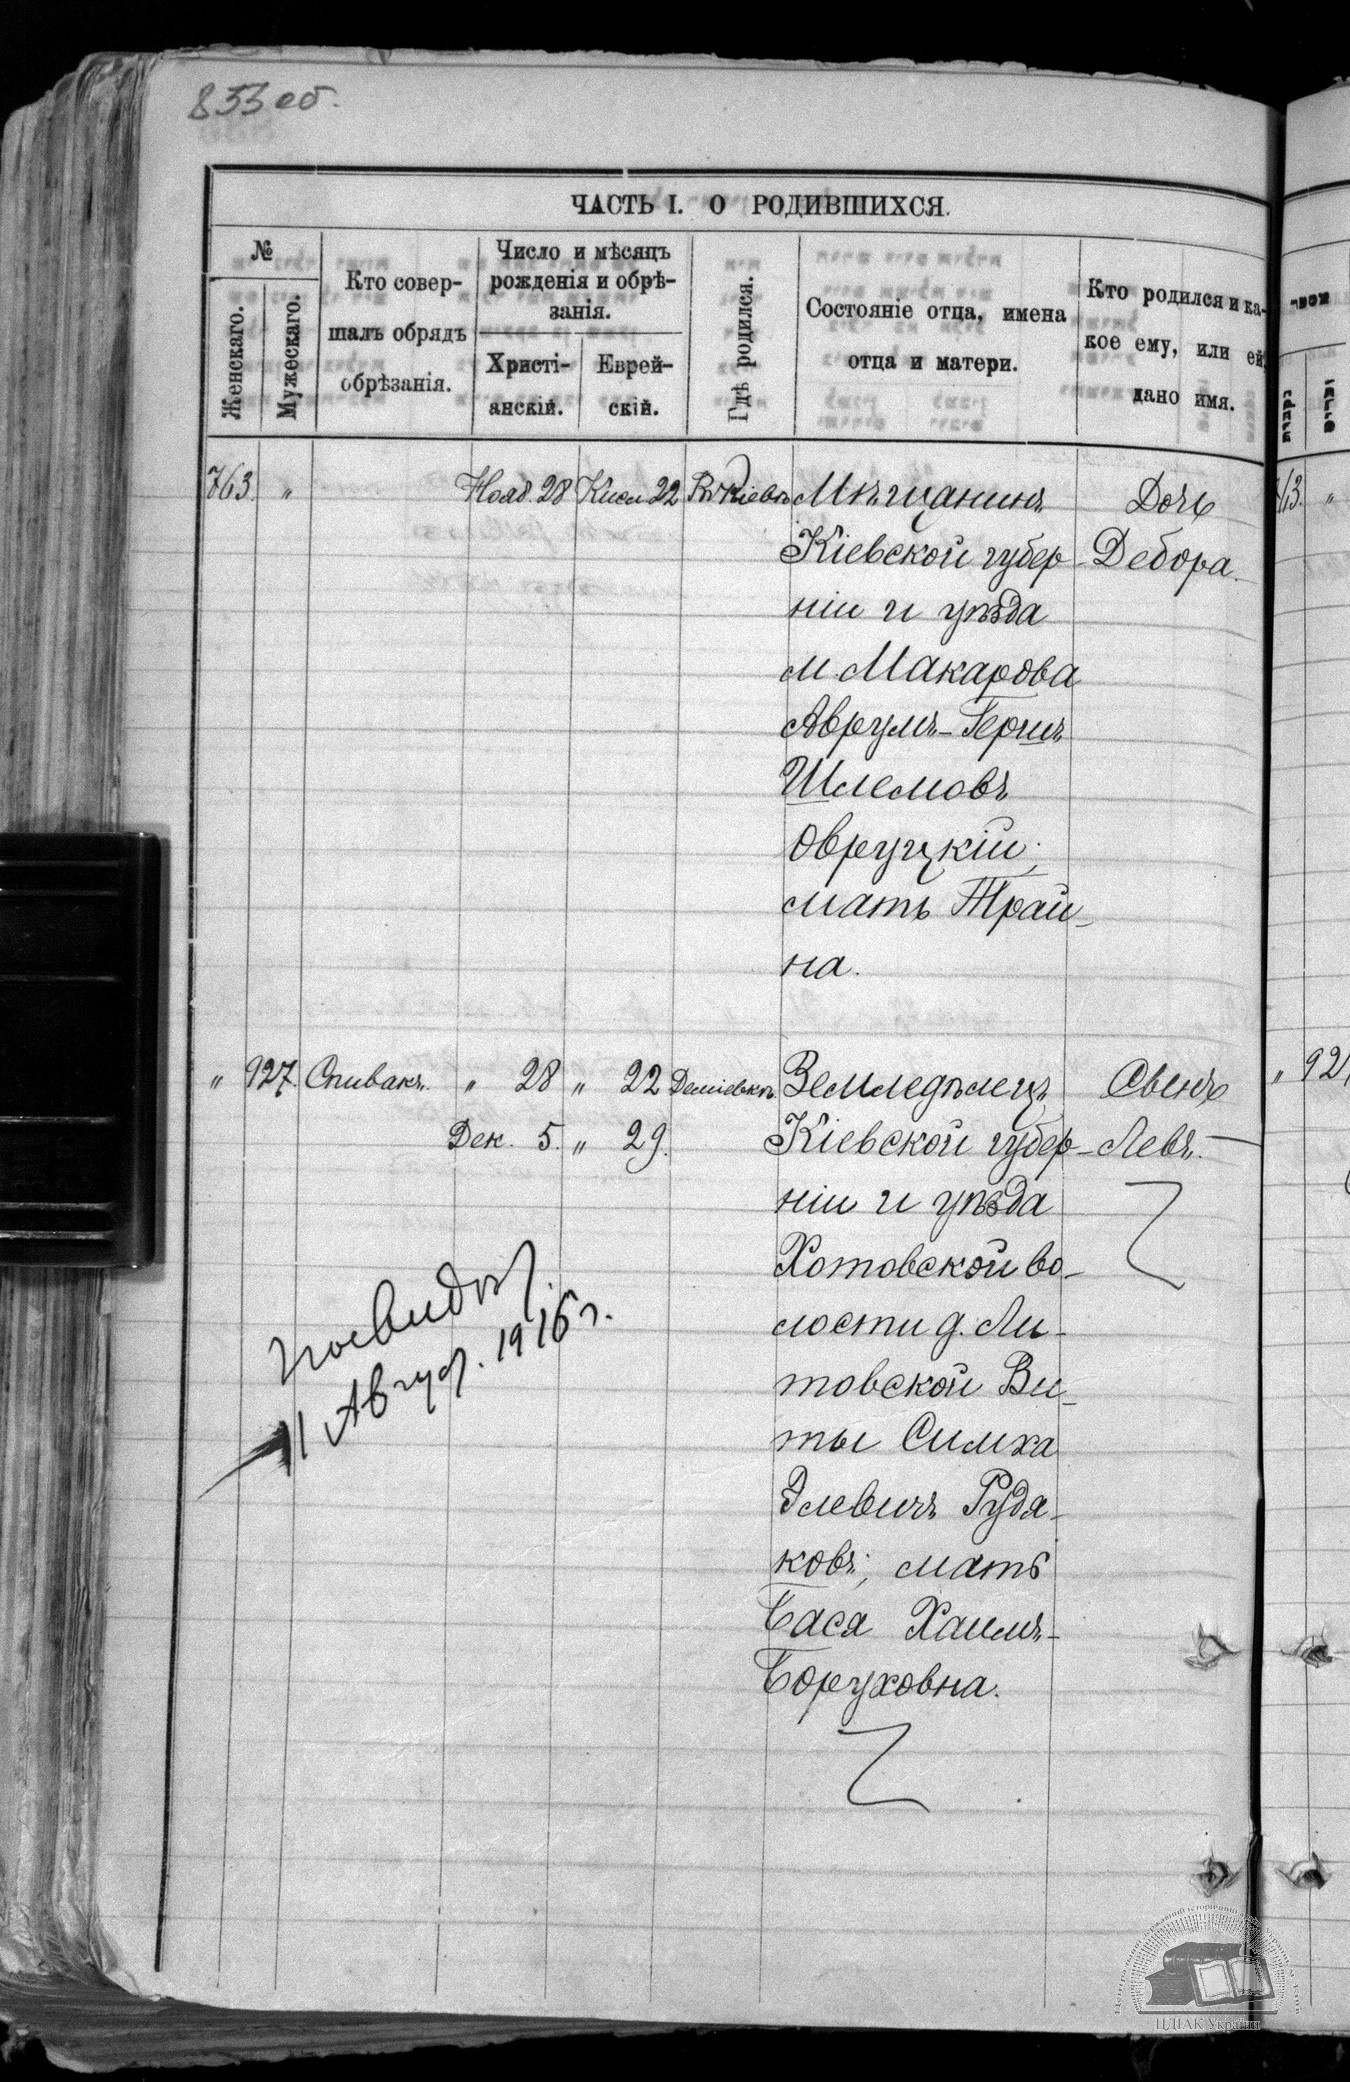 853 об.
ЧАСТЬ I. О РОДИВШИХСЯ.
№
Женскаго.
Мужескаго.
Кто совер-
шалъ обрядъ
обрѣзанія.
Число и мѣсяцъ
рожденія и обрѣ-
занія.
Христі-
анскій.
Еврей-
скій.
Гдѣ родился.
Состояніе отца, имена
отца и матери.
Кто родился и ка-
кое ему, или ей,
дано имя.
763. " Нояб. 28 Кисл 22 Въ Кіевѣ Мѣщанинъ Дочь
Кіевской губер- Дебора.
ніи и уѣзда
м. Макарова
Аврумъ-Гершъ
Шлемовъ
Овруцкій;
мать Трай-
на.
" 927. Спивакъ. " 28 " 22 Деміевкѣ. Земледѣлецъ Сынъ
Дек. 5. " 29. Кіевской губер- Левъ.
ніи и уѣзда
Хотовской во-
лости д. Ли-
товской Ви-
ты Симха
Элевичъ Рудя-
ковъ; мать
Бася Хаимъ-
Боруховна.
11 Август. 1916 г.
ЦДІАК України